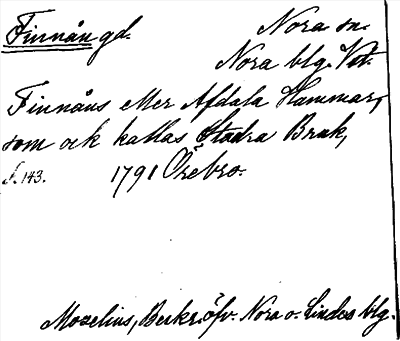 Finnån gd. Nora sn.
Nora blg. Vstm.
Finnåns eller Afdala Hammar,
som ock kallas Stadra Bruk,
s. 143. 1791 Örebro.
Mozelius, Beskr. öfv. Nora o. Lindes blg.